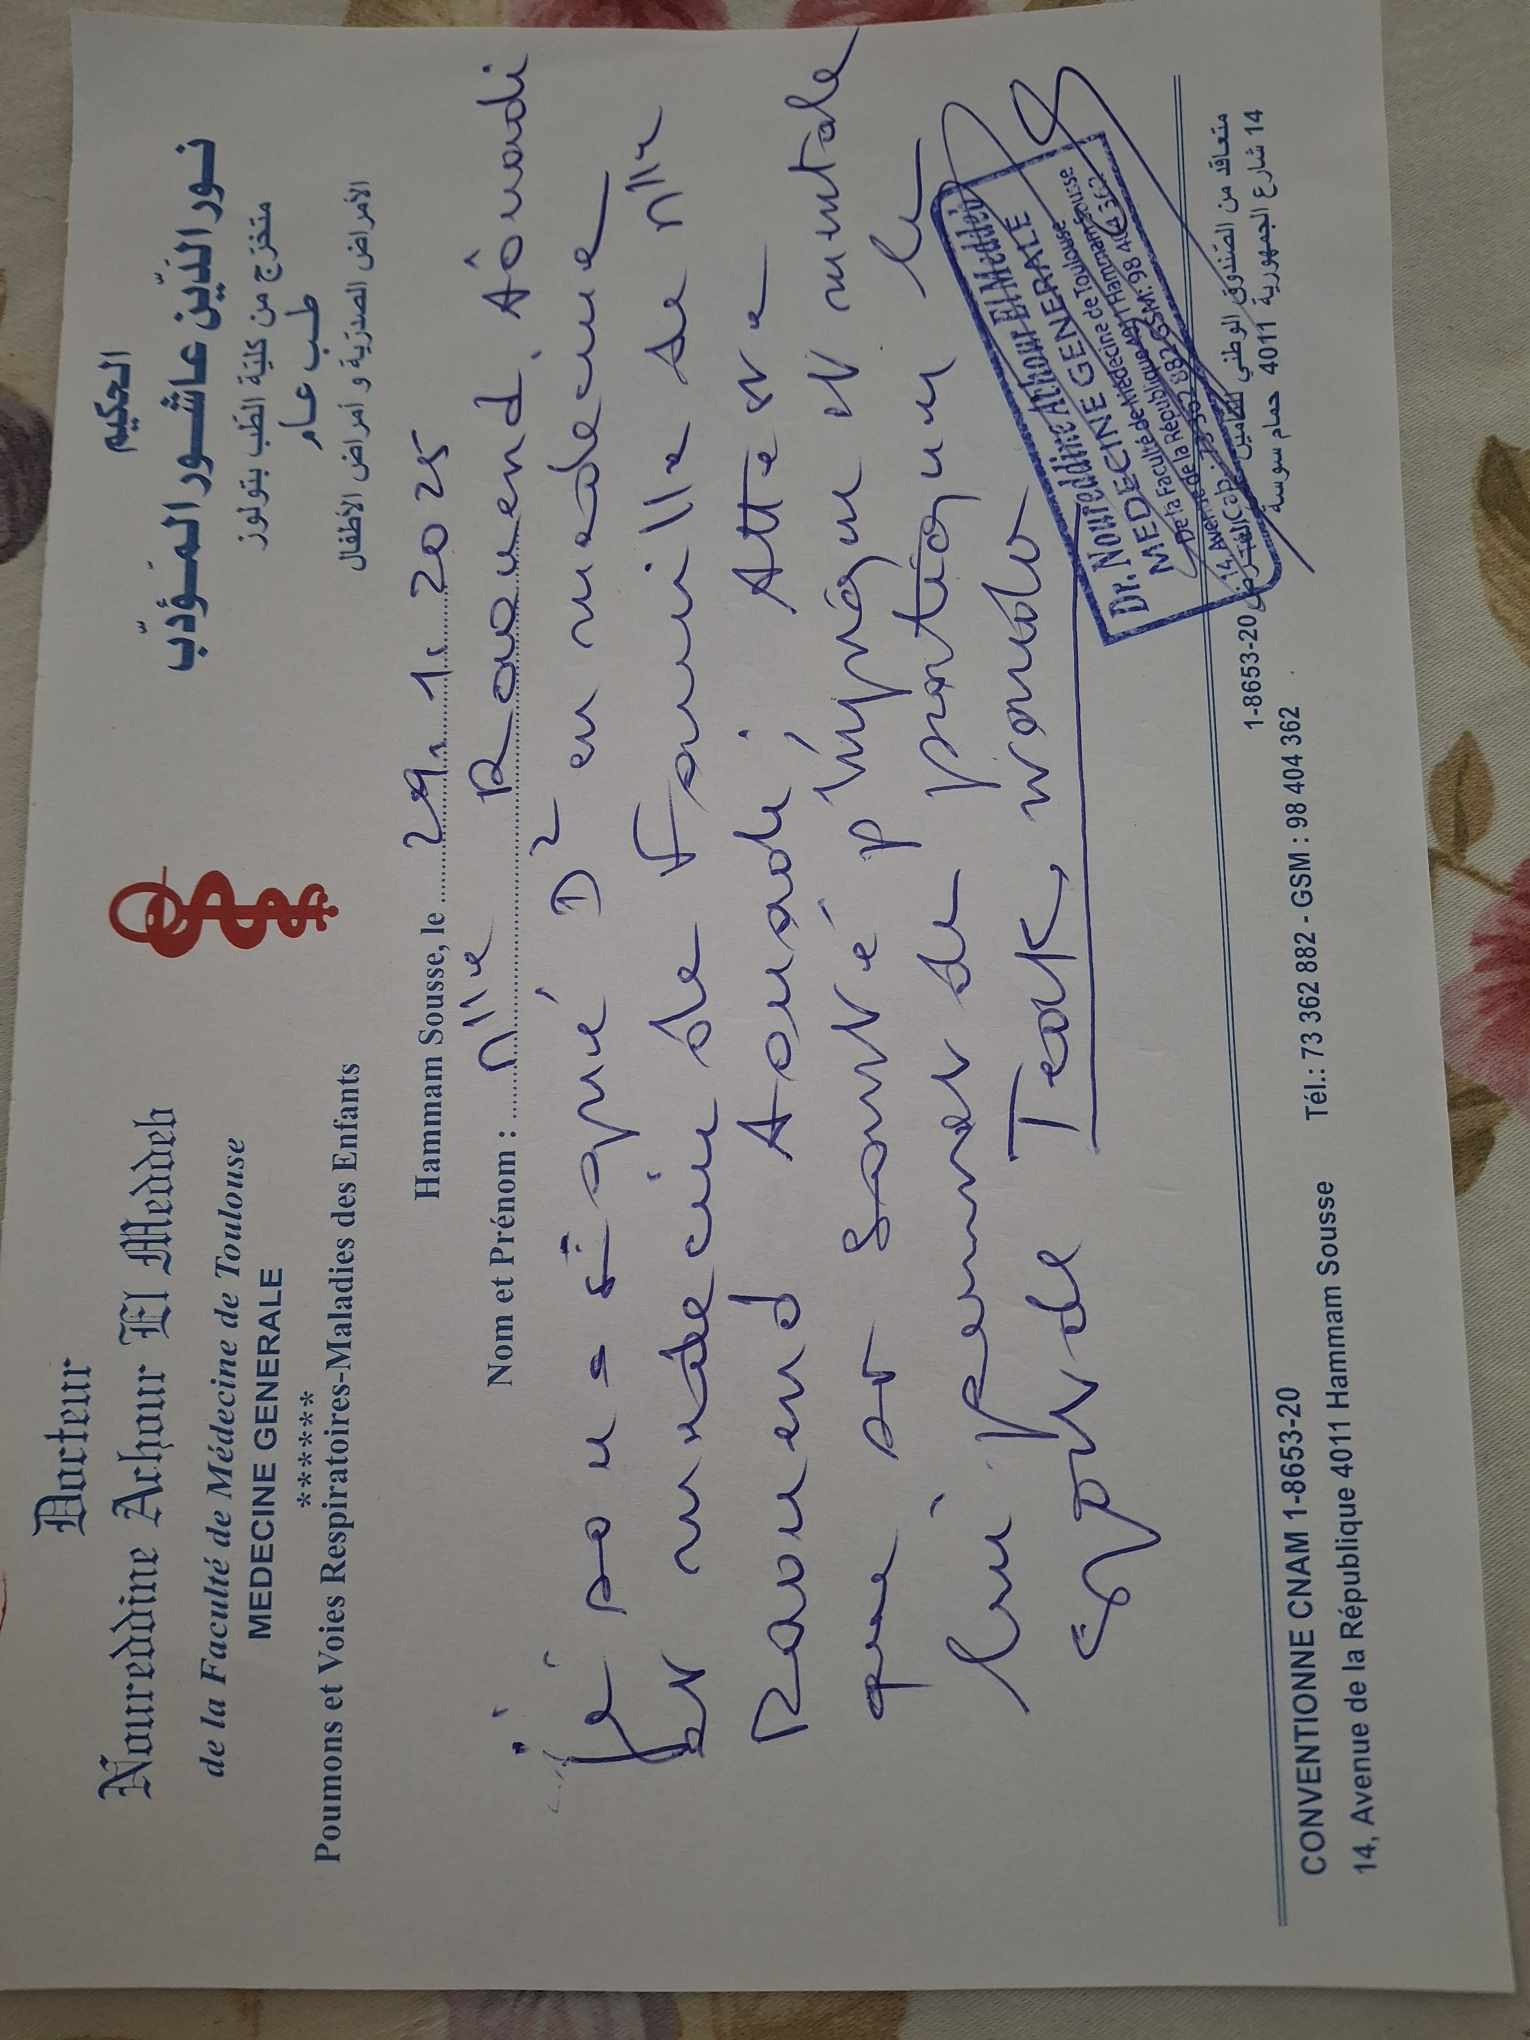 Docteur
Noureddine Achour El Meddeb
de la Faculté de Médecine de Toulouse
MEDECINE GENERALE
******
Poumons et Voies Respiratoires-Maladies des Enfants
الحكيم
نور الدّين عاشور المؤدّب
متخرج من كلية الطب بتولوز
طب عام
الأمراض الصدرية و أمراض الأطفال
Hammam Sousse, le 29.1.2025
Nom et Prénom : Mlle Raouend Aouadi
Je soussigné Dr en médecine
et médecin de Famille de Mlle
Raouend Aouadi, Atteste
que sa santé physique et mentale
lui permet de pratiquer le
sport de Teak, wondo
Dr. Noureddine Achour El Meddeb
MEDECINE GENERALE
De la Faculté de Médecine de Toulouse
14, Avenue de la République 4011 Hammam Sousse
362 882 GSM: 98 404 362
1-8653-20 متعاقد من الصندوق الوطني للتأمين على المرض
14 شارع الجمهورية 4011 حمام سوسة
CONVENTIONNE CNAM 1-8653-20
14, Avenue de la République 4011 Hammam Sousse Tél.: 73 362 882 - GSM : 98 404 362